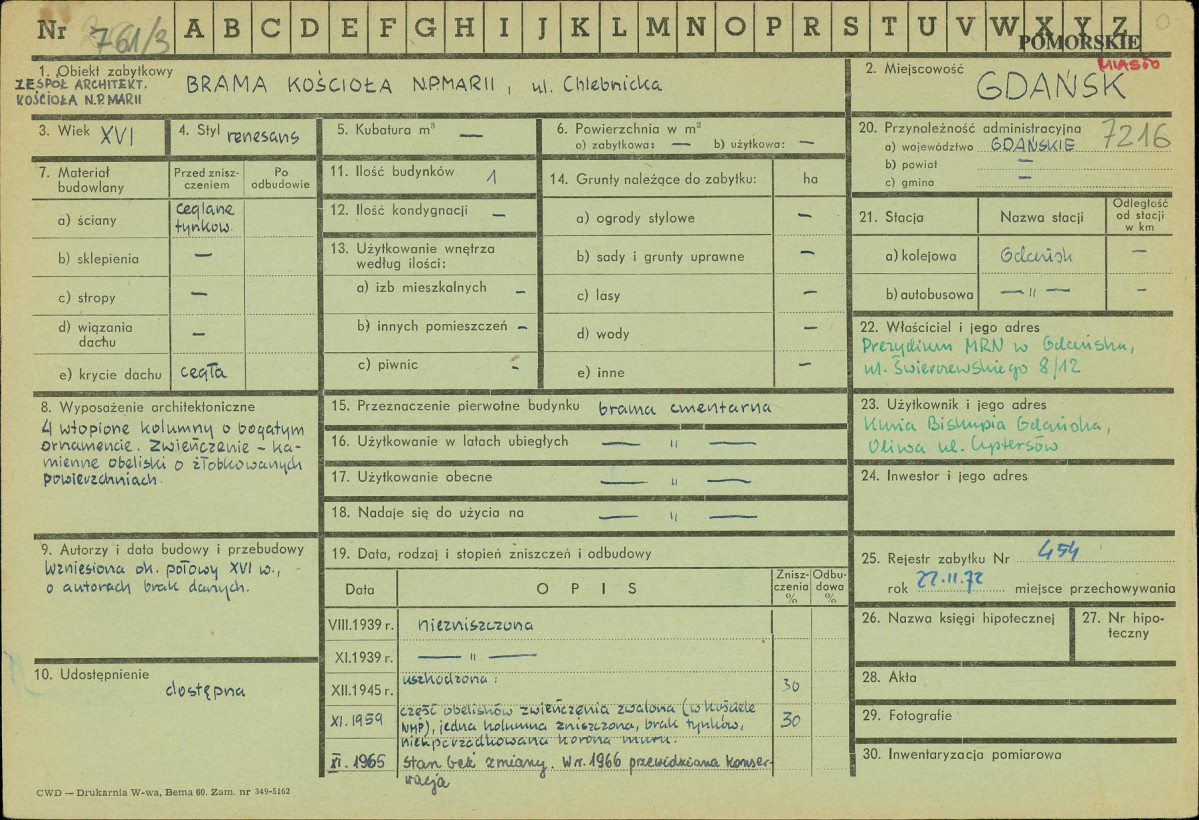 Nr 761/3 A B C D E F G H I J K L M N O P R S T U V W X Y Z
POMORSKIE
MIASTO
1. Obiekt zabytkowy
ZESPÓŁ ARCHITEKT.
KOŚCIOŁA N.P.MARII
BRAMA KOŚCIOŁA N.P.MARII, ul. Chlebnicka
2. Miejscowość
GDAŃSK
3. Wiek XVI
4. Styl renesans
5. Kubatura m³ —
6. Powierzchnia w m²
a) zabytkowa: — b) użytkowa: —
7. Materiał budowlany
Przed znisz-
czeniem
Po
odbudowie
a) ściany ceglane
tynkow.
b) sklepienia —
c) stropy —
d) wiązania
dachu —
e) krycie dachu cegła
8. Wyposażenie architektoniczne
4 wtopione kolumny o bogatym
ornamencie. Zwieńczenie – ka-
mienne obeliski o żłobkowanych
powierzchniach.
9. Autorzy i data budowy i przebudowy
Wzniesiona ok. połowy XVI w.,
o autorach brak danych.
10. Udostępnienie
dostępna
11. Ilość budynków 1
12. Ilość kondygnacji —
13. Użytkowanie wnętrza
według ilości:
a) izb mieszkalnych —
b) innych pomieszczeń —
c) piwnic -
14. Grunty należące do zabytku: ha
a) ogrody stylowe —
b) sady i grunty uprawne —
c) lasy —
d) wody —
e) inne —
15. Przeznaczenie pierwotne budynku brama cmentarna
16. Użytkowanie w latach ubiegłych — " —
17. Użytkowanie obecne — " —
18. Nadaje się do użycia na — " —
19. Data, rodzaj i stopień zniszczeń i odbudowy
Data
O P I S
Znisz-
czenia
%
Odbu-
dowa
%
VIII.1939 r. niezniszczona
XI.1939 r. — " —
XII.1945 r. uszkodzona: 30
XI.1959 część obelisków zwieńczenia zwalona (w kościele
NMP), jedna kolumna zniszczona, brak tynków, 30
nieuporządkowana korona muru.
XI.1965 Stan bez zmiany. W r. 1966 przewidziana konser-
wacja
20. Przynależność administracyjna 7216
a) województwo GDAŃSKIE
b) powiat —
c) gmina —
21. Stacja
Nazwa stacji
Odległość
od stacji
w km
a) kolejowa Gdańsk —
b) autobusowa — " — -
22. Właściciel i jego adres
Prezydium MRN w Gdańsku,
ul. Świerczewskiego 8/12
23. Użytkownik i jego adres
Kuria Biskupia Gdańska,
Oliwa ul. Cystersów
24. Inwestor i jego adres
25. Rejestr zabytku Nr 454
rok 22.II.72 miejsce przechowywania
26. Nazwa księgi hipotecznej
27. Nr hipo-
teczny
28. Akta
29. Fotografie
30. Inwentaryzacja pomiarowa
CWD — Drukarnia W-wa, Bema 60. Zam. nr 349-5162